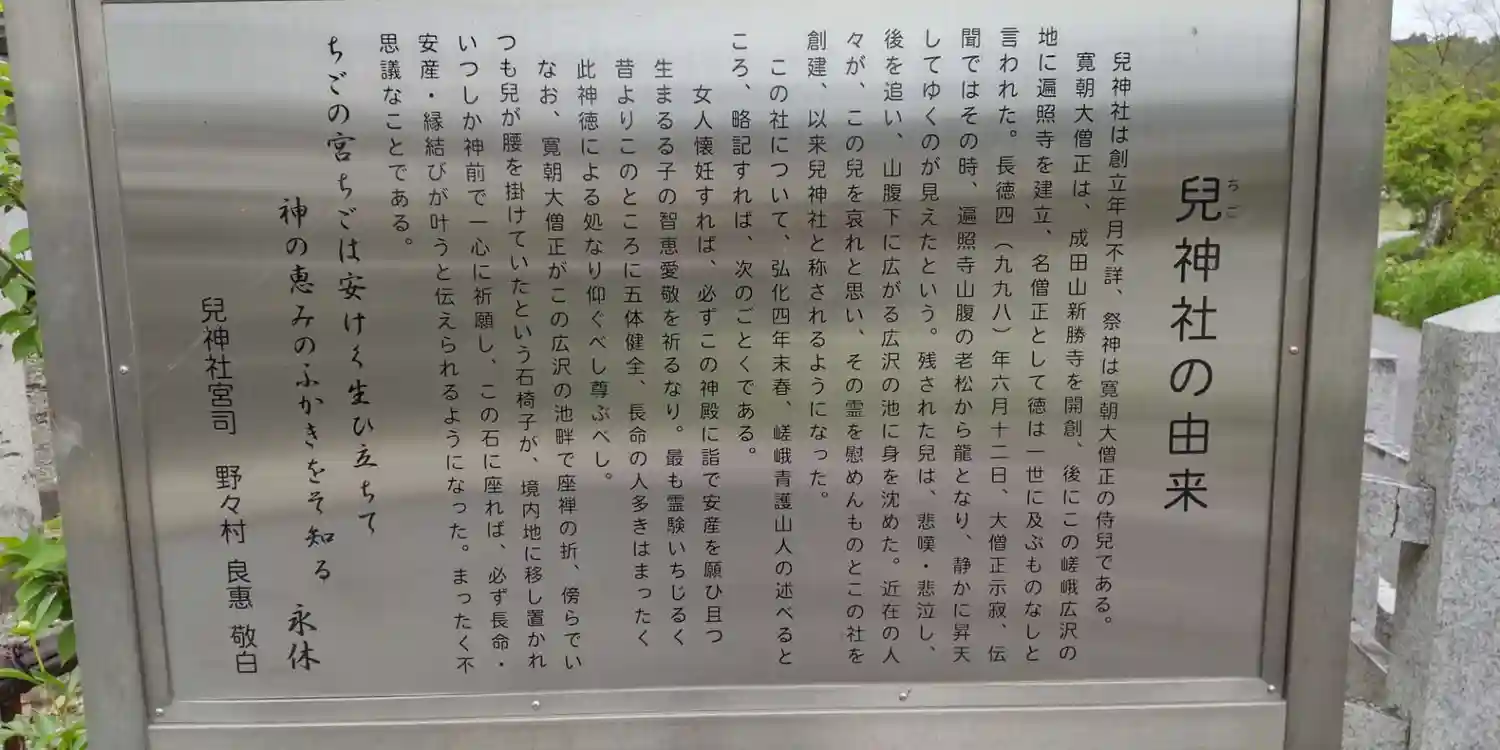 ちご
兒神社の由来
兒神社は創立年月不詳、祭神は寛朝大僧正の侍兒である。
寛朝大僧正は、成田山新勝寺を開創、後にこの嵯峨広沢の
地に遍照寺を建立、名僧正として徳は一世に及ぶものなしと
言われた。長徳四（九九八）年六月十二日、大僧正示寂、伝
聞ではその時、遍照寺山腹の老松から龍となり、静かに昇天
してゆくのが見えたという。残された兒は、悲嘆・悲泣し、
後を追い、山腹下に広がる広沢の池に身を沈めた。近在の人
々が、この兒を哀れと思い、その霊を慰めんものとこの社を
創建、以来兒神社と称されるようになった。
この社について、弘化四年末春、嵯峨青護山人の述べると
ころ、略記すれば、次のごとくである。
女人懐妊すれば、必ずこの神殿に詣で安産を願ひ且つ
生まるる子の智恵愛敬を祈るなり。最も霊験いちじるく
昔よりこのところに五体健全、長命の人多きはまったく
此神徳による処なり仰ぐべし尊ぶべし。
なお、寛朝大僧正がこの広沢の池畔で座禅の折、傍らでい
つも兒が腰を掛けていたという石椅子が、境内地に移し置かれ
いつしか神前で一心に祈願し、この石に座れば、必ず長命・
安産・縁結びが叶うと伝えられるようになった。まったく不
思議なことである。
ちごの宮ちごは安けく生ひ立ちて
神の恵みのふかきをそ知る 永休
兒神社宮司 野々村 良惠 敬白